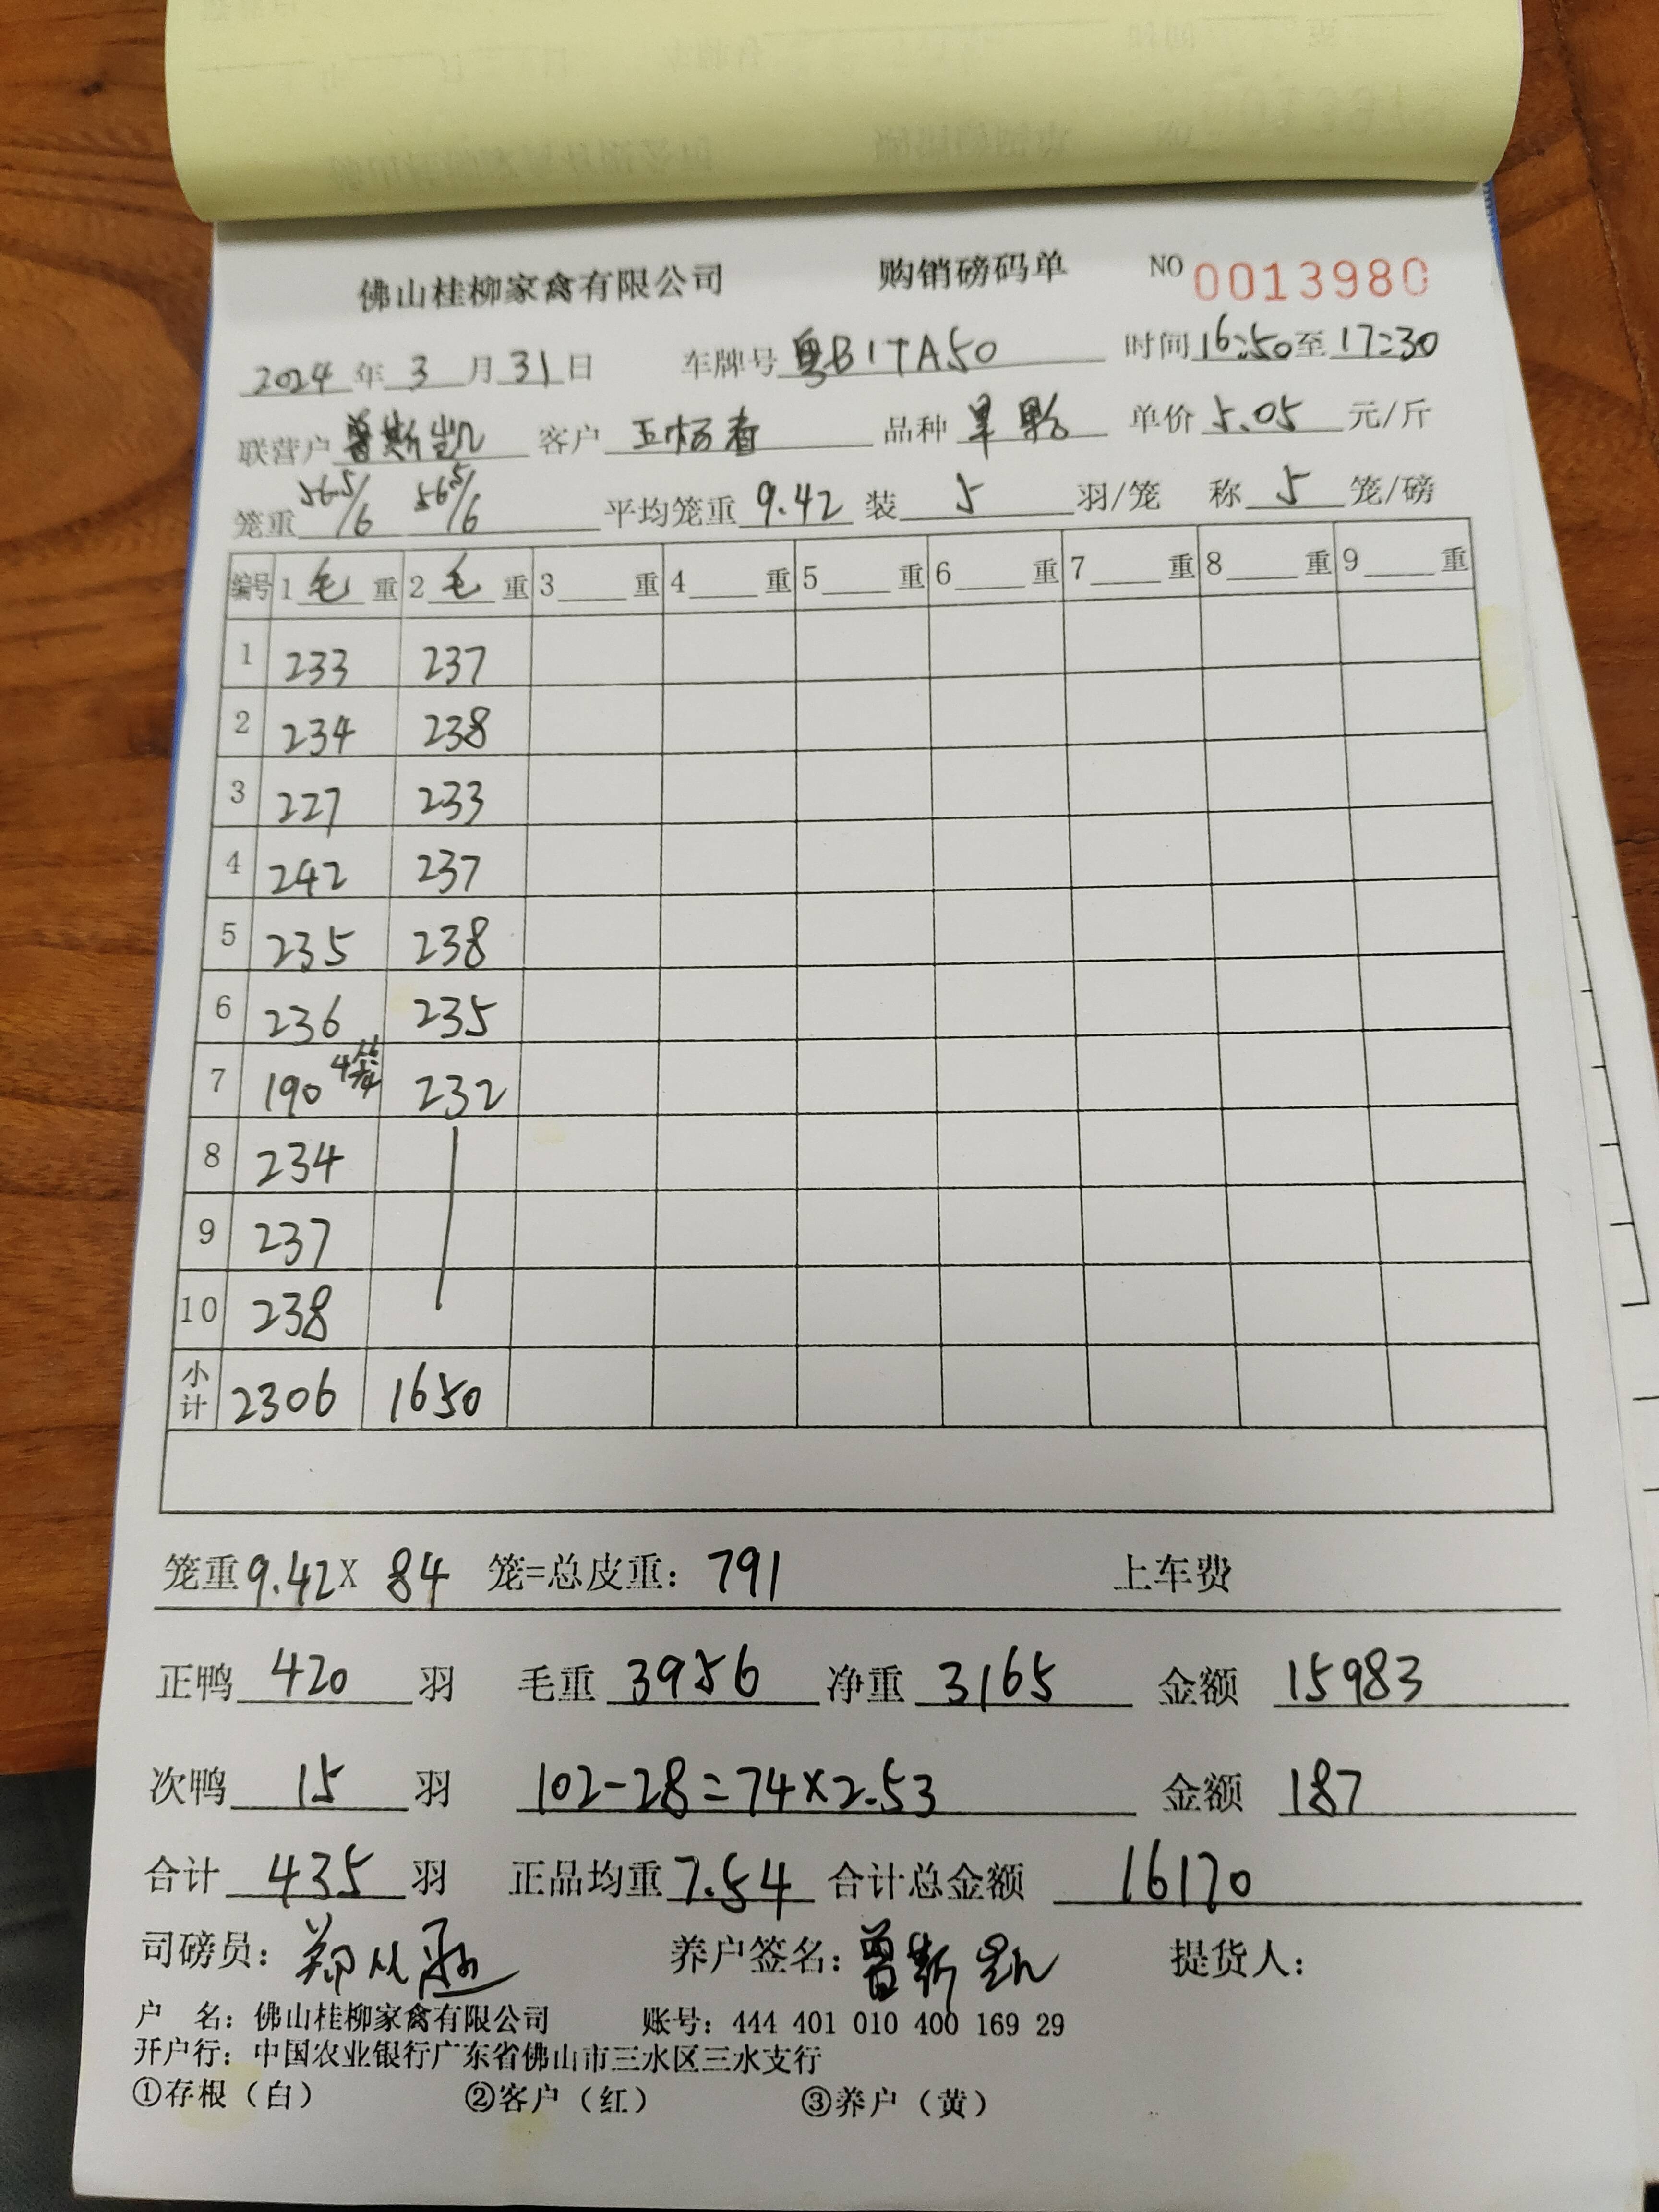 佛山桂柳家禽有限公司 购销磅码单 NO 0013980
2024年3月31日 车牌号 粤B1TA50 时间16:50至17:30
联营户 曾斯凯 客户 王杨春 品种 单价 5.05 元/斤
笼重 56.5/6 56.5/6 平均笼重 9.42 装 5 羽/笼 称 5 笼/磅
编号 1 毛 重 2 毛 重 3 重 4 重 5 重 6 重 7 重 8 重 9 重
1 233 237
2 234 238
3 227 233
4 242 237
5 235 238
6 236 235
7 190 4笼 232
8 234
9 237
10 238
小计 2306 1650
笼重9.42X 84 笼=总皮重：791 上车费
正鸭 420 羽 毛重 3956 净重 3165 金额 15983
次鸭 15 羽 102-28=74×2.53 金额 187
合计 435 羽 正品均重 7.54 合计总金额 16170
司磅员： 养户签名：曾斯凯 提货人：
户 名：佛山桂柳家禽有限公司 账号：444 401 010 400 169 29
开户行：中国农业银行广东省佛山市三水区三水支行
①存根（白） ②客户（红） ③养户（黄）